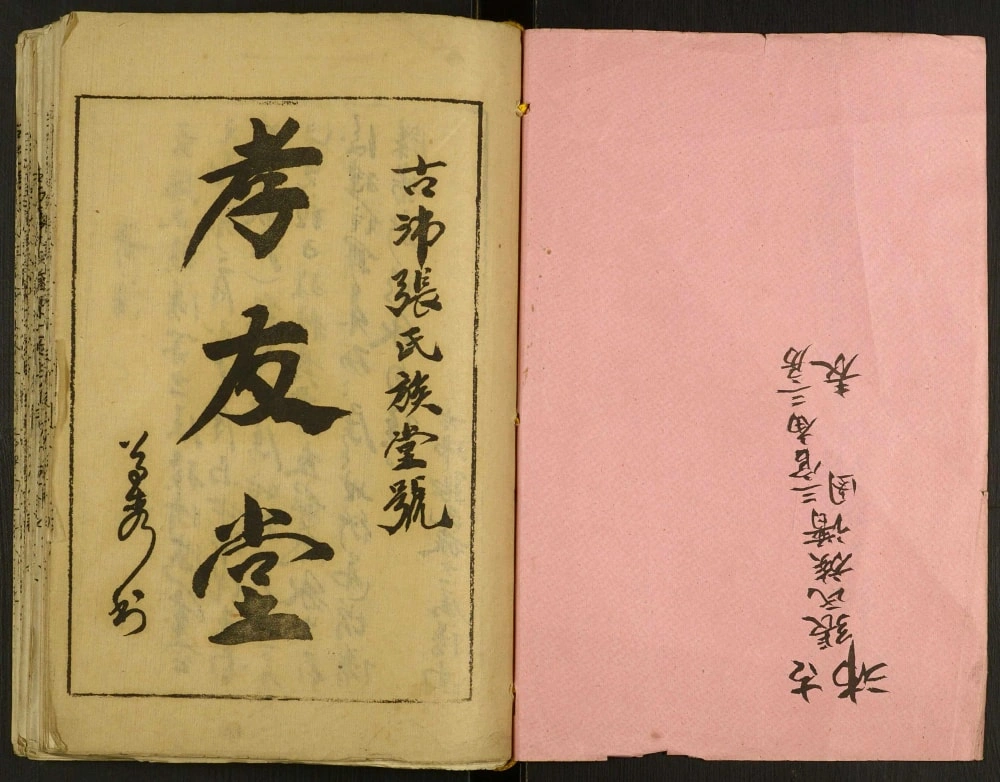 古沛張氏族堂號
孝友堂
古沛
張氏族譜三官廟三房
表